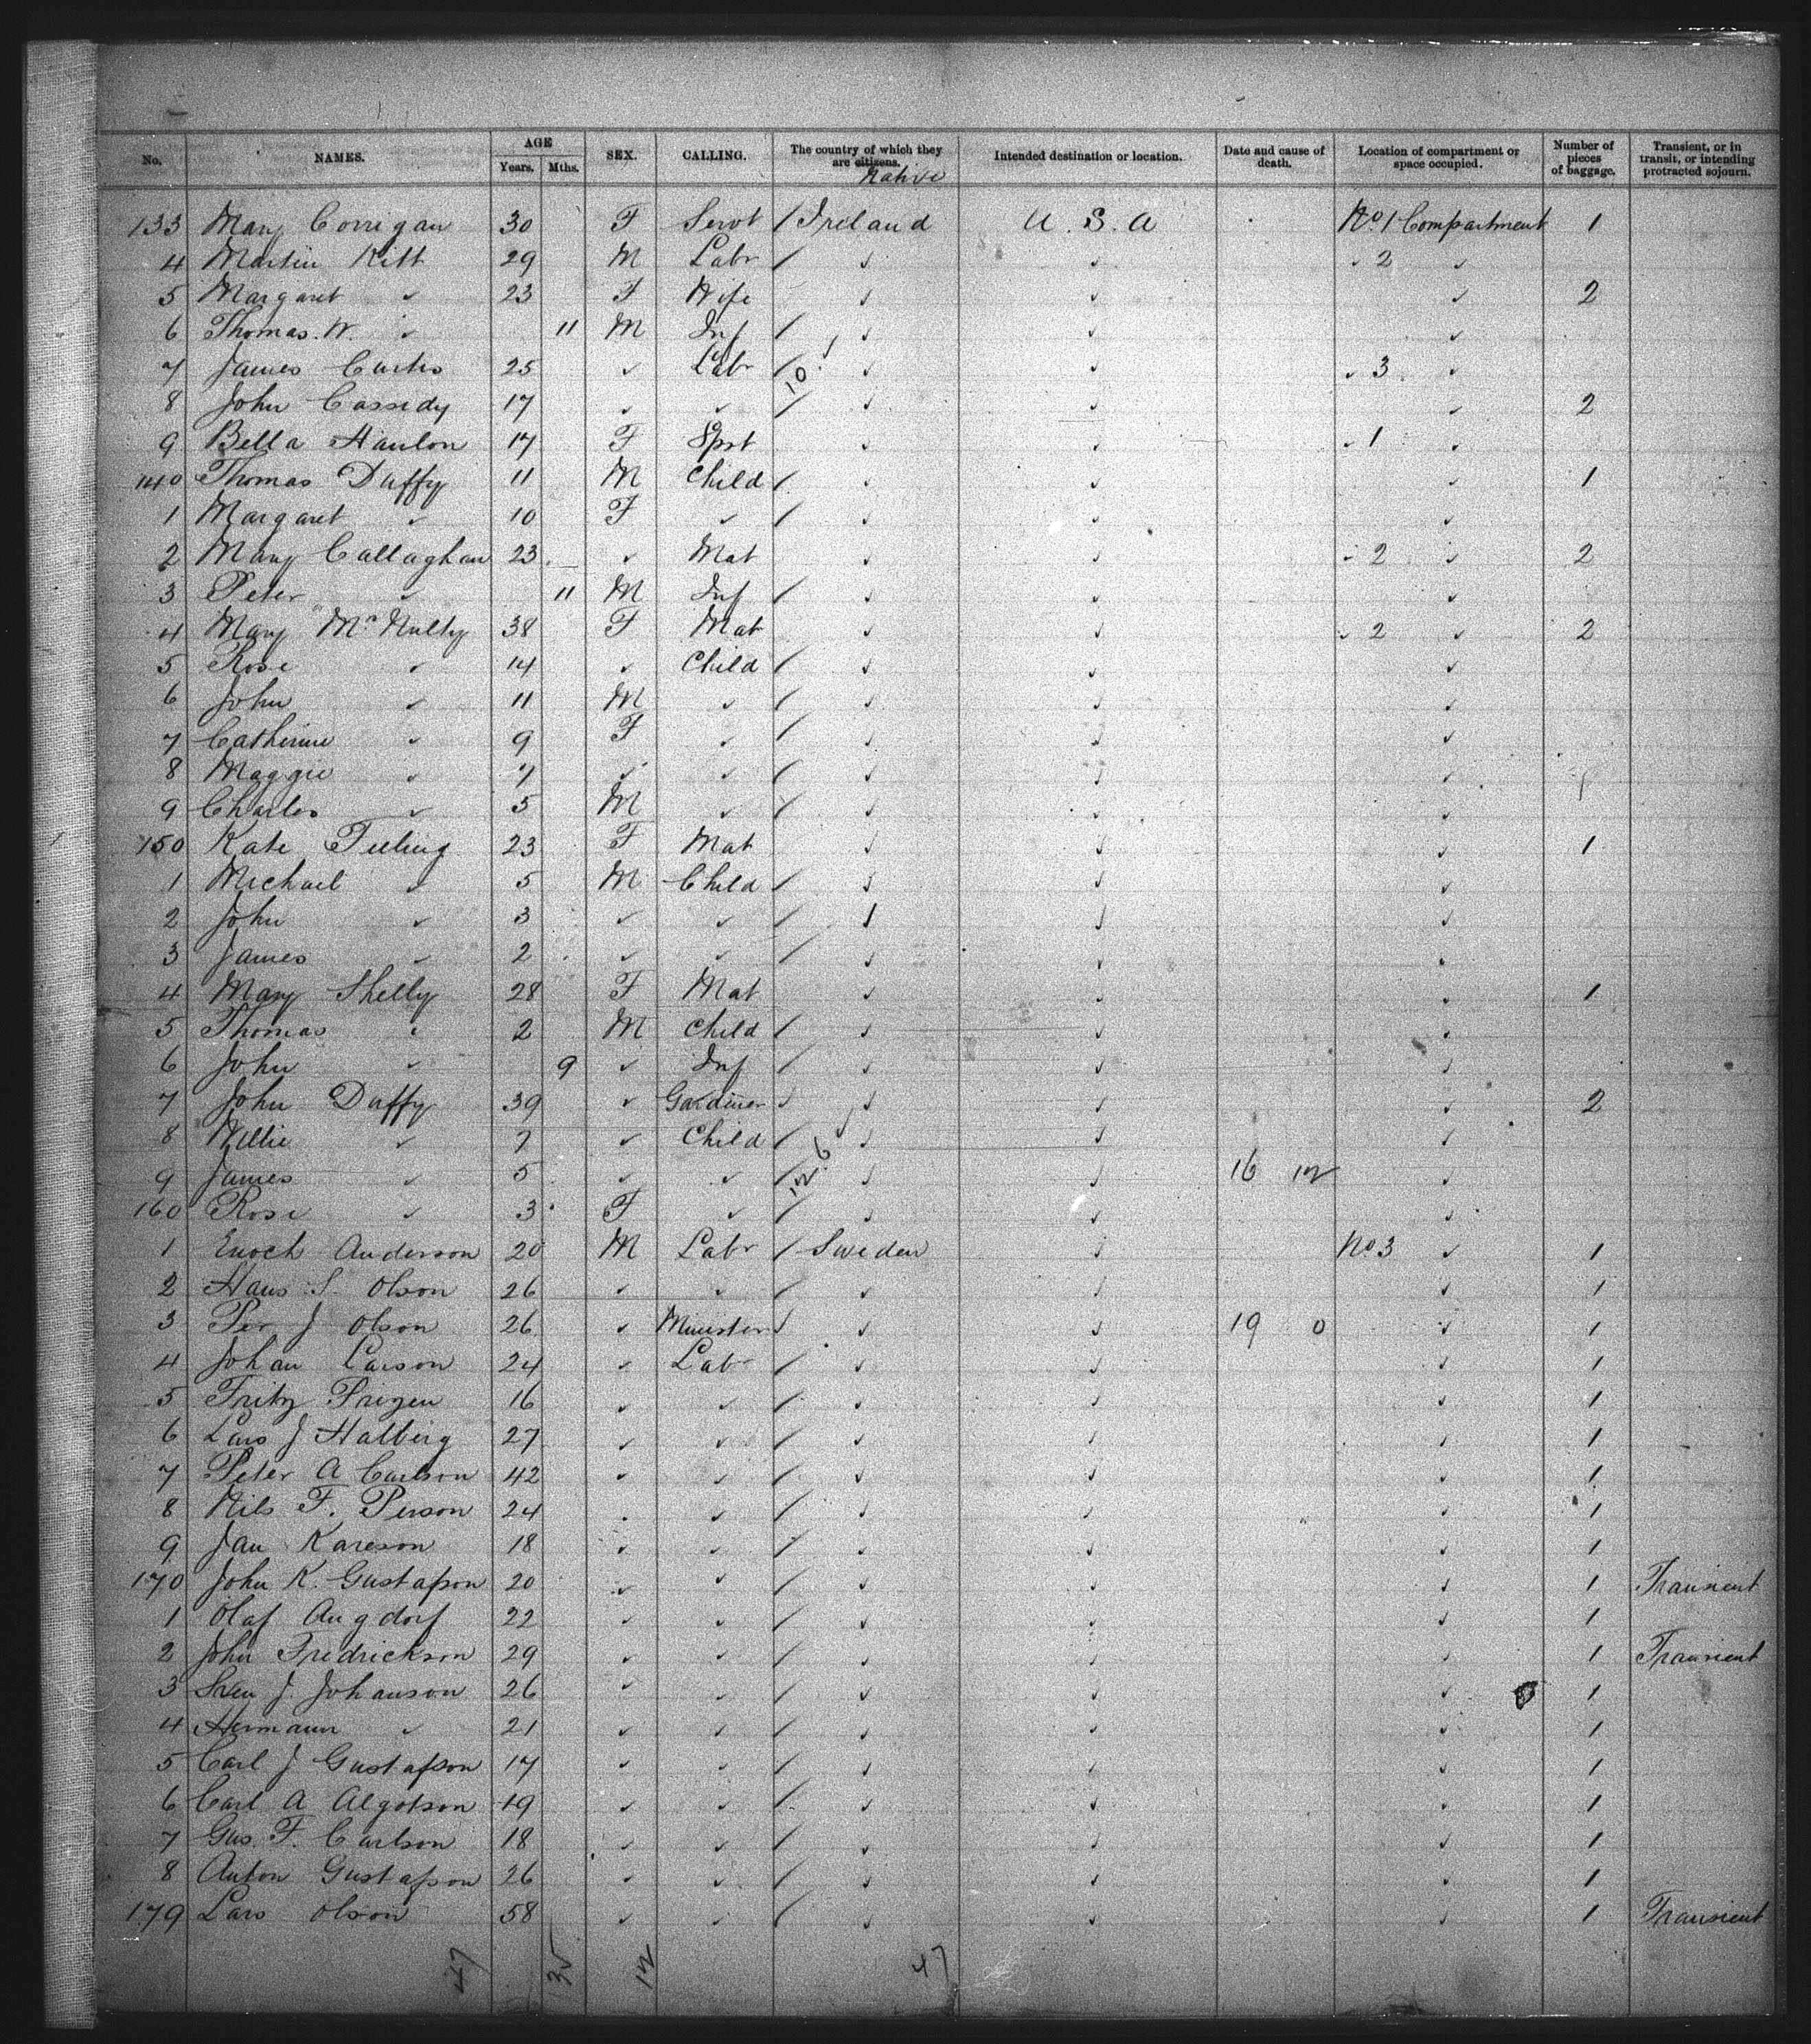 No. NAMES. AGE Years. Mths. SEX. CALLING. The country of which they are citizens. Native Intended destination or location. Date and cause of death. Location of compartment or space occupied. Number of pieces of baggage. Transient, or in transit, or intending protracted sojourn.
133 Mary Corrigan 30 F Servt / Ireland U.S.A No 1 Compartment 1
4 Martin Kitt 29 M Labr / ✓ ✓ ✓ 2 ✓
5 Margaret ✓ 23 F Wife ✓ ✓ ✓ 2
6 Thomas. W. ✓ 11 M Inf / ✓ ✓ ✓
7 James Curtis 25 ✓ Labr / 10 ✓ ✓ ✓ 3 ✓
8 John Cassidy 17 ✓ ✓ / ✓ ✓ ✓ 2
9 Bella Hanlon 17 F Spst ✓ ✓ ✓ 1 ✓
140 Thomas Duffy 11 M Child / ✓ ✓ ✓ 1
1 Margaret ✓ 10 F ✓ / ✓ ✓ ✓
2 Mary Callaghan 23 ✓ Mat ✓ ✓ ✓ 2 ✓ 2
3 Peter ✓ 11 M Inf / ✓ ✓ ✓
4 Mary McNulty 38 F Mat ✓ ✓ ✓ 2 ✓ 2
5 Rose ✓ 14 ✓ Child / ✓ ✓ ✓
6 John ✓ 11 M ✓ / ✓ ✓ ✓
7 Catherine ✓ 9 F ✓ / ✓ ✓ ✓
8 Maggie ✓ 7 ✓ ✓ / ✓ ✓ ✓
9 Charles ✓ 5 M ✓ / ✓ ✓ ✓
150 Kate Tieling 23 F Mat ✓ ✓ ✓ 1
1 Michael ✓ 5 M Child / ✓ ✓ ✓
2 John ✓ 3 ✓ ✓ / ✓ ✓ ✓
3 James ✓ 2 ✓ ✓ / ✓ ✓ ✓
4 Mary Shelly 28 F Mat ✓ ✓ ✓ 1
5 Thomas ✓ 2 M Child / ✓ ✓ ✓
6 John ✓ 9 ✓ Inf / ✓ ✓ ✓
7 John Duffy 39 ✓ Gardiner ✓ ✓ ✓ ✓ 2
8 Willie ✓ 7 ✓ Child / ✓ ✓ ✓
9 James ✓ 5 ✓ ✓ / 12 6 ✓ ✓ 16 12 ✓
160 Rose ✓ 3 F ✓ / ✓ ✓ ✓
1 Enoch Anderson 20 M Labr / Sweden ✓ No 3 ✓ 1
2 Hans S. Olson 26 ✓ ✓ / ✓ ✓ ✓ 1
3 Per J Olson 26 ✓ Minister ✓ ✓ ✓ 19 0 ✓ 1
4 Johan Larson 24 ✓ Labr / ✓ ✓ ✓ 1
5 Fritz Frizen 16 ✓ ✓ / ✓ ✓ ✓ 1
6 Lars J Halberg 27 ✓ ✓ / ✓ ✓ ✓ 1
7 Peter A Carlson 42 ✓ ✓ / ✓ ✓ ✓ 1
8 Nils F. Person 24 ✓ ✓ / ✓ ✓ ✓ 1
9 Jan Kareson 18 ✓ ✓ / ✓ ✓ ✓ 1
170 John K. Gustafson 20 ✓ ✓ / ✓ ✓ ✓ 1 Transient
1 Olaf Angdorf 22 ✓ ✓ / ✓ ✓ ✓ 1
2 John Fredrickson 29 ✓ ✓ / ✓ ✓ ✓ 1 Transient
3 Sven J. Johanson 26 ✓ ✓ / ✓ ✓ ✓ 1
4 Hermann ✓ 21 ✓ ✓ / ✓ ✓ ✓ 1
5 Carl J Gustafson 17 ✓ ✓ / ✓ ✓ ✓ 1
6 Carl A Algotson 19 ✓ ✓ / ✓ ✓ ✓ 1
7 Gus. F. Carlson 18 ✓ ✓ / ✓ ✓ ✓ 1
8 Anton Gustafson 26 ✓ ✓ / ✓ ✓ ✓ 1
179 Lars Olson 58 ✓ ✓ / ✓ ✓ ✓ 1 Transient
47 35 12 47